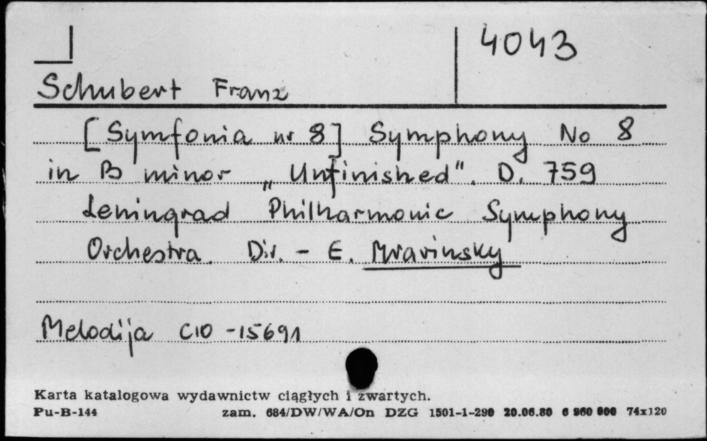 4043
Schubert Franz
[Symfonia nr 8] Symphony No 8
in B minor „Unfinished". D. 759
Leningrad Philharmonic Symphony
Orchestra. Dir. - E. Mravinsky
Melodija C10-15691
Karta katalogowa wydawnictw ciągłych i zwartych.
Pu-B-144 zam. 684/DW/WA/On DZG 1501-1-290 20.06.80 6 960 000 74x120